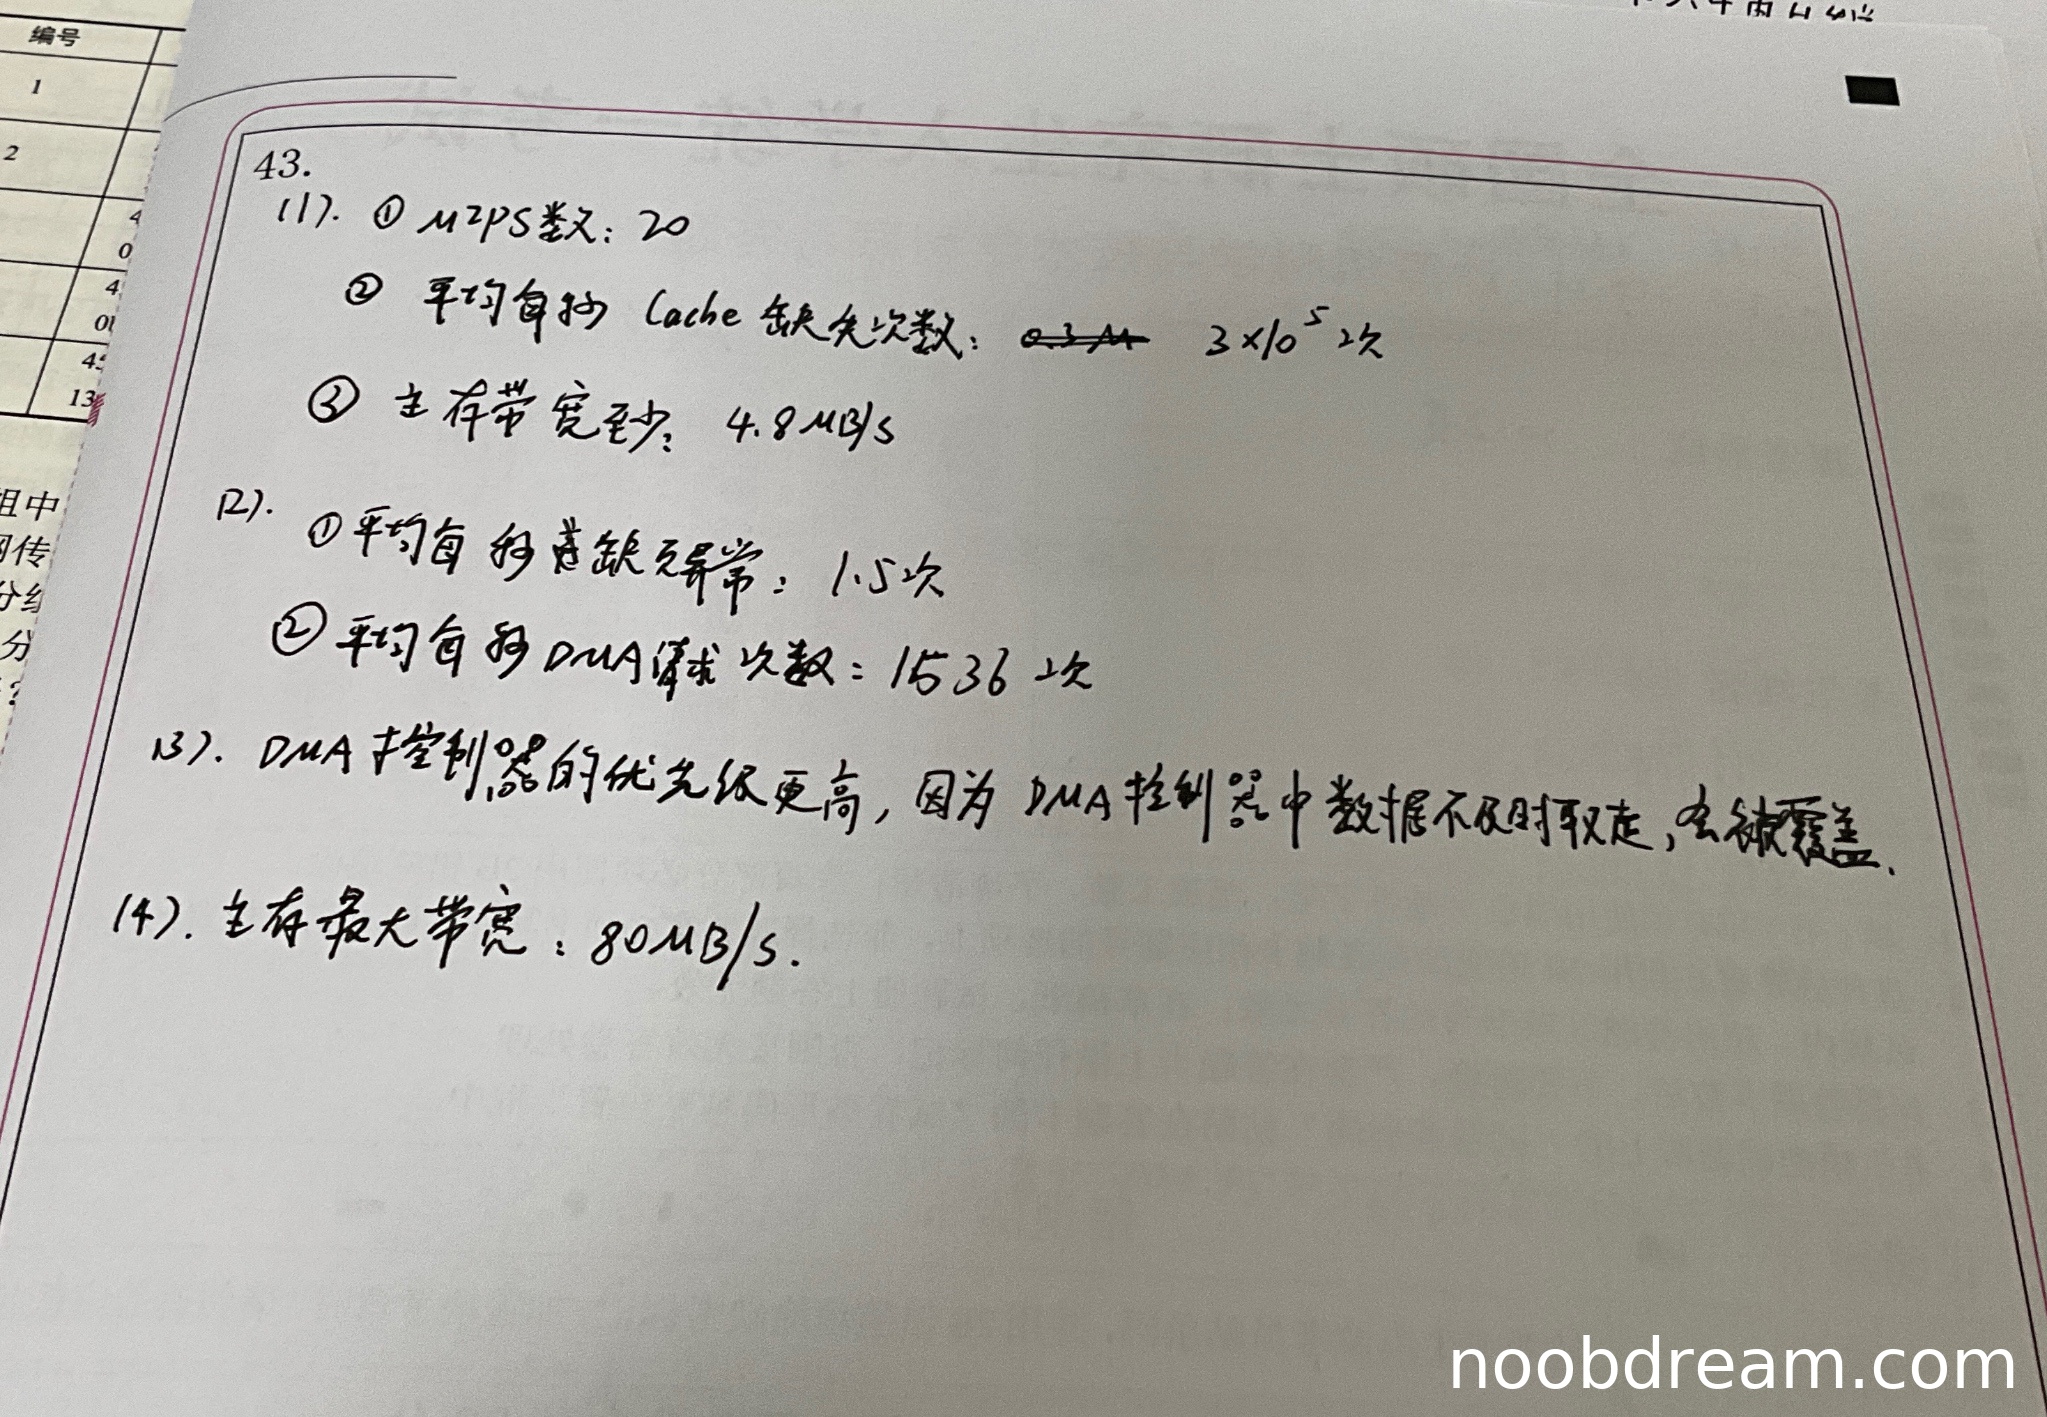 编号
1
2
43.
(1). ① MIPS数: 20
② 平均每秒 Cache 缺失次数: 0.3M 3×10^5 次
③ 主存带宽至少: 4.8MB/s
(2). ① 平均每秒 缺页异常: 1.5次
② 平均每秒DMA请求次数: 1536 次
(3). DMA控制器的优先级更高, 因为 DMA控制器中数据不及时取走, 会被覆盖.
(4). 主存最大带宽: 80MB/s.
组中
noobdream.com